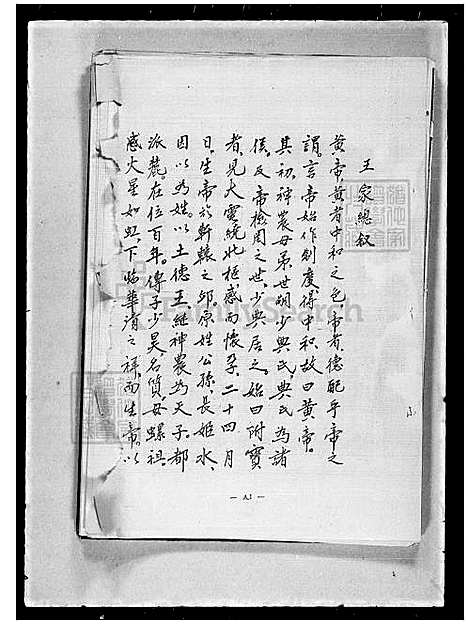 王家總叙
黃帝、黃者中和之色、帝者、德配乎帝之
謂、言帝始作制度得中和、故曰黃帝。
其初、神農母弟、世嗣少典氏、典氏為諸
侯、及帝榆罔之世、少典君之、始曰附寶
者、見大電繞北樞、感而懷孕、二十四月
日、生帝於軒轅之邱、原姓公孫、長姬水、
因以為姓。以土德王、繼神農為天子。都
涿鹿。在位百年。傳子少昊名質、母螺祖、
感火星如虹、下臨華渚之祥、而生帝、以
FamilySearch